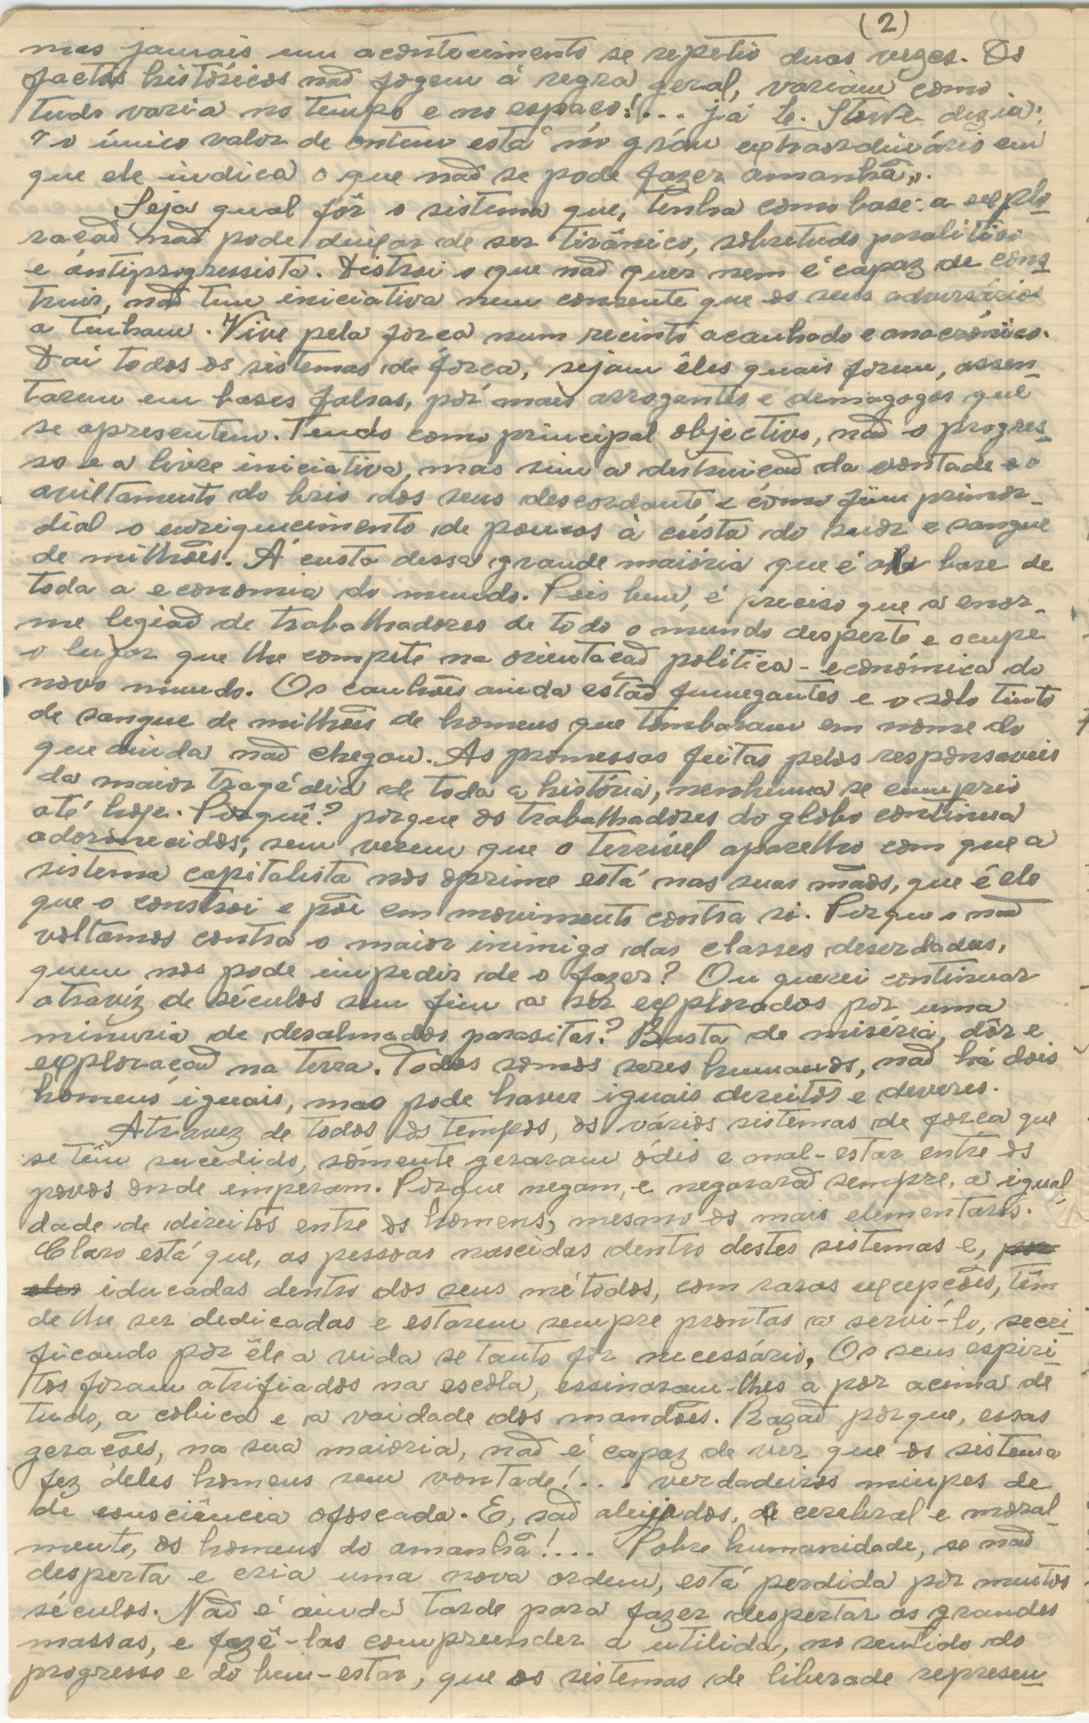 (2)
mas jamais um acontecimento se repetio duas vezes. Os
factos históricos não fogem á regra geral, variam como
tudo varia no tempo e no espaço!... já dizia:
"o único valor de ontem está no gráu extraordinário em
que ele indica o que não se pode fazer amanhã".
Seja qual fôr o sistema que, tenha como base: a explo-
ração não pode deixar de ser tirânico, sobretudo paralitico
e antiprogressista. Distroi o que não quer nem é capaz de cons-
truir, não tem iniciativa nem consente que os seus adversários
a tenham. Vive pela força num recinto acanhado e anacrónico.
Daí todos os sistemas de força, sejam êles quais forem, assen-
tarem em bases falsas, por mais arrogantes e demagogos que
se apresentem. Tendo como principal objectivo, não o progres-
so e a livre iniciativa, mas sim a distruição da vontade e o
aviltamento do brio dos seus descordante, e como fim primor-
dial o enriquecimento de poucos à custa do suor e sangue
de milhões. Á custa dessa grande maioria que é a base de
toda a economia do mundo. Pois bem, é preciso que a enor-
me legião de trabalhadores de todo o mundo desperte e ocupe
o lugar que lhe compete na orientação política-económica do
novo mundo. Os canhões ainda estão fumegantes e o solo tinto
de sangue de milhões de homens que tombaram em nome do
que ainda não chegou. As promessas feitas pelos responsaveis
da maior tragédia de toda a história, nenhuma se cumprio
até hoje. Porquê? porque os trabalhadores do globo continua
adormecidos, sem verem que o terrível aparelho com que a
sistema capitalista nos oprime está nas suas mãos, que é ele
que o constroi e põi em movimento contra si. Porque o não
voltamos contra o maior inimigo das classes deserdadas,
quem nos pode impedir de o fazer? Ou querei continuar
atravéz de séculos sem fim a ser explorados por uma
minuria de desalmados parasitas? Basta de miséria, dôr e
exploração na terra. Todos somos seres humanos, não há dois
homens iguais, mas pode haver iguais dereitos e deveres.
Atravez de todos os tempos, os vários sistemas de força que
se têm sucedido, sómente geraram ódio e mal-estar entre os
povos onde emperam. Porque negam, e negarão sempre, a igual-
dade de direitos entre os homens, mesmo os mais elementares.
Claro está que, as pessoas nascidas dentro destes sistemas e, por
eles iducadas dentro dos seus métodos, com raras excepções, têm
de lhe ser dedicadas e estarem sempre prontas a servi-lo, secri-
ficando por êle a vida se tanto for necessário, Os seus espiri-
tos foram atrifiados na escola, essinaram-lhes a por acima de
tudo, a cobiça e a vaidade dos mandões. Razão porque, essas
gerações, na sua maioria, não é capaz de ver que os sistema
fez deles homens sem vontade!... verdadeiros de
de consciência ofoscada. E, são aleijados, cerebral e moral-
mente, os homens do amanhã!.... Pobre humanidade, se não
desperta e cria uma nova ordem, está perdida por muitos
séculos. Não é ainda tarde para fazer despertar as grandes
massas, e fazê-las compreender a utilida, no sentido do
progresso e do bem-estar, que os sistemas de liberade represen-